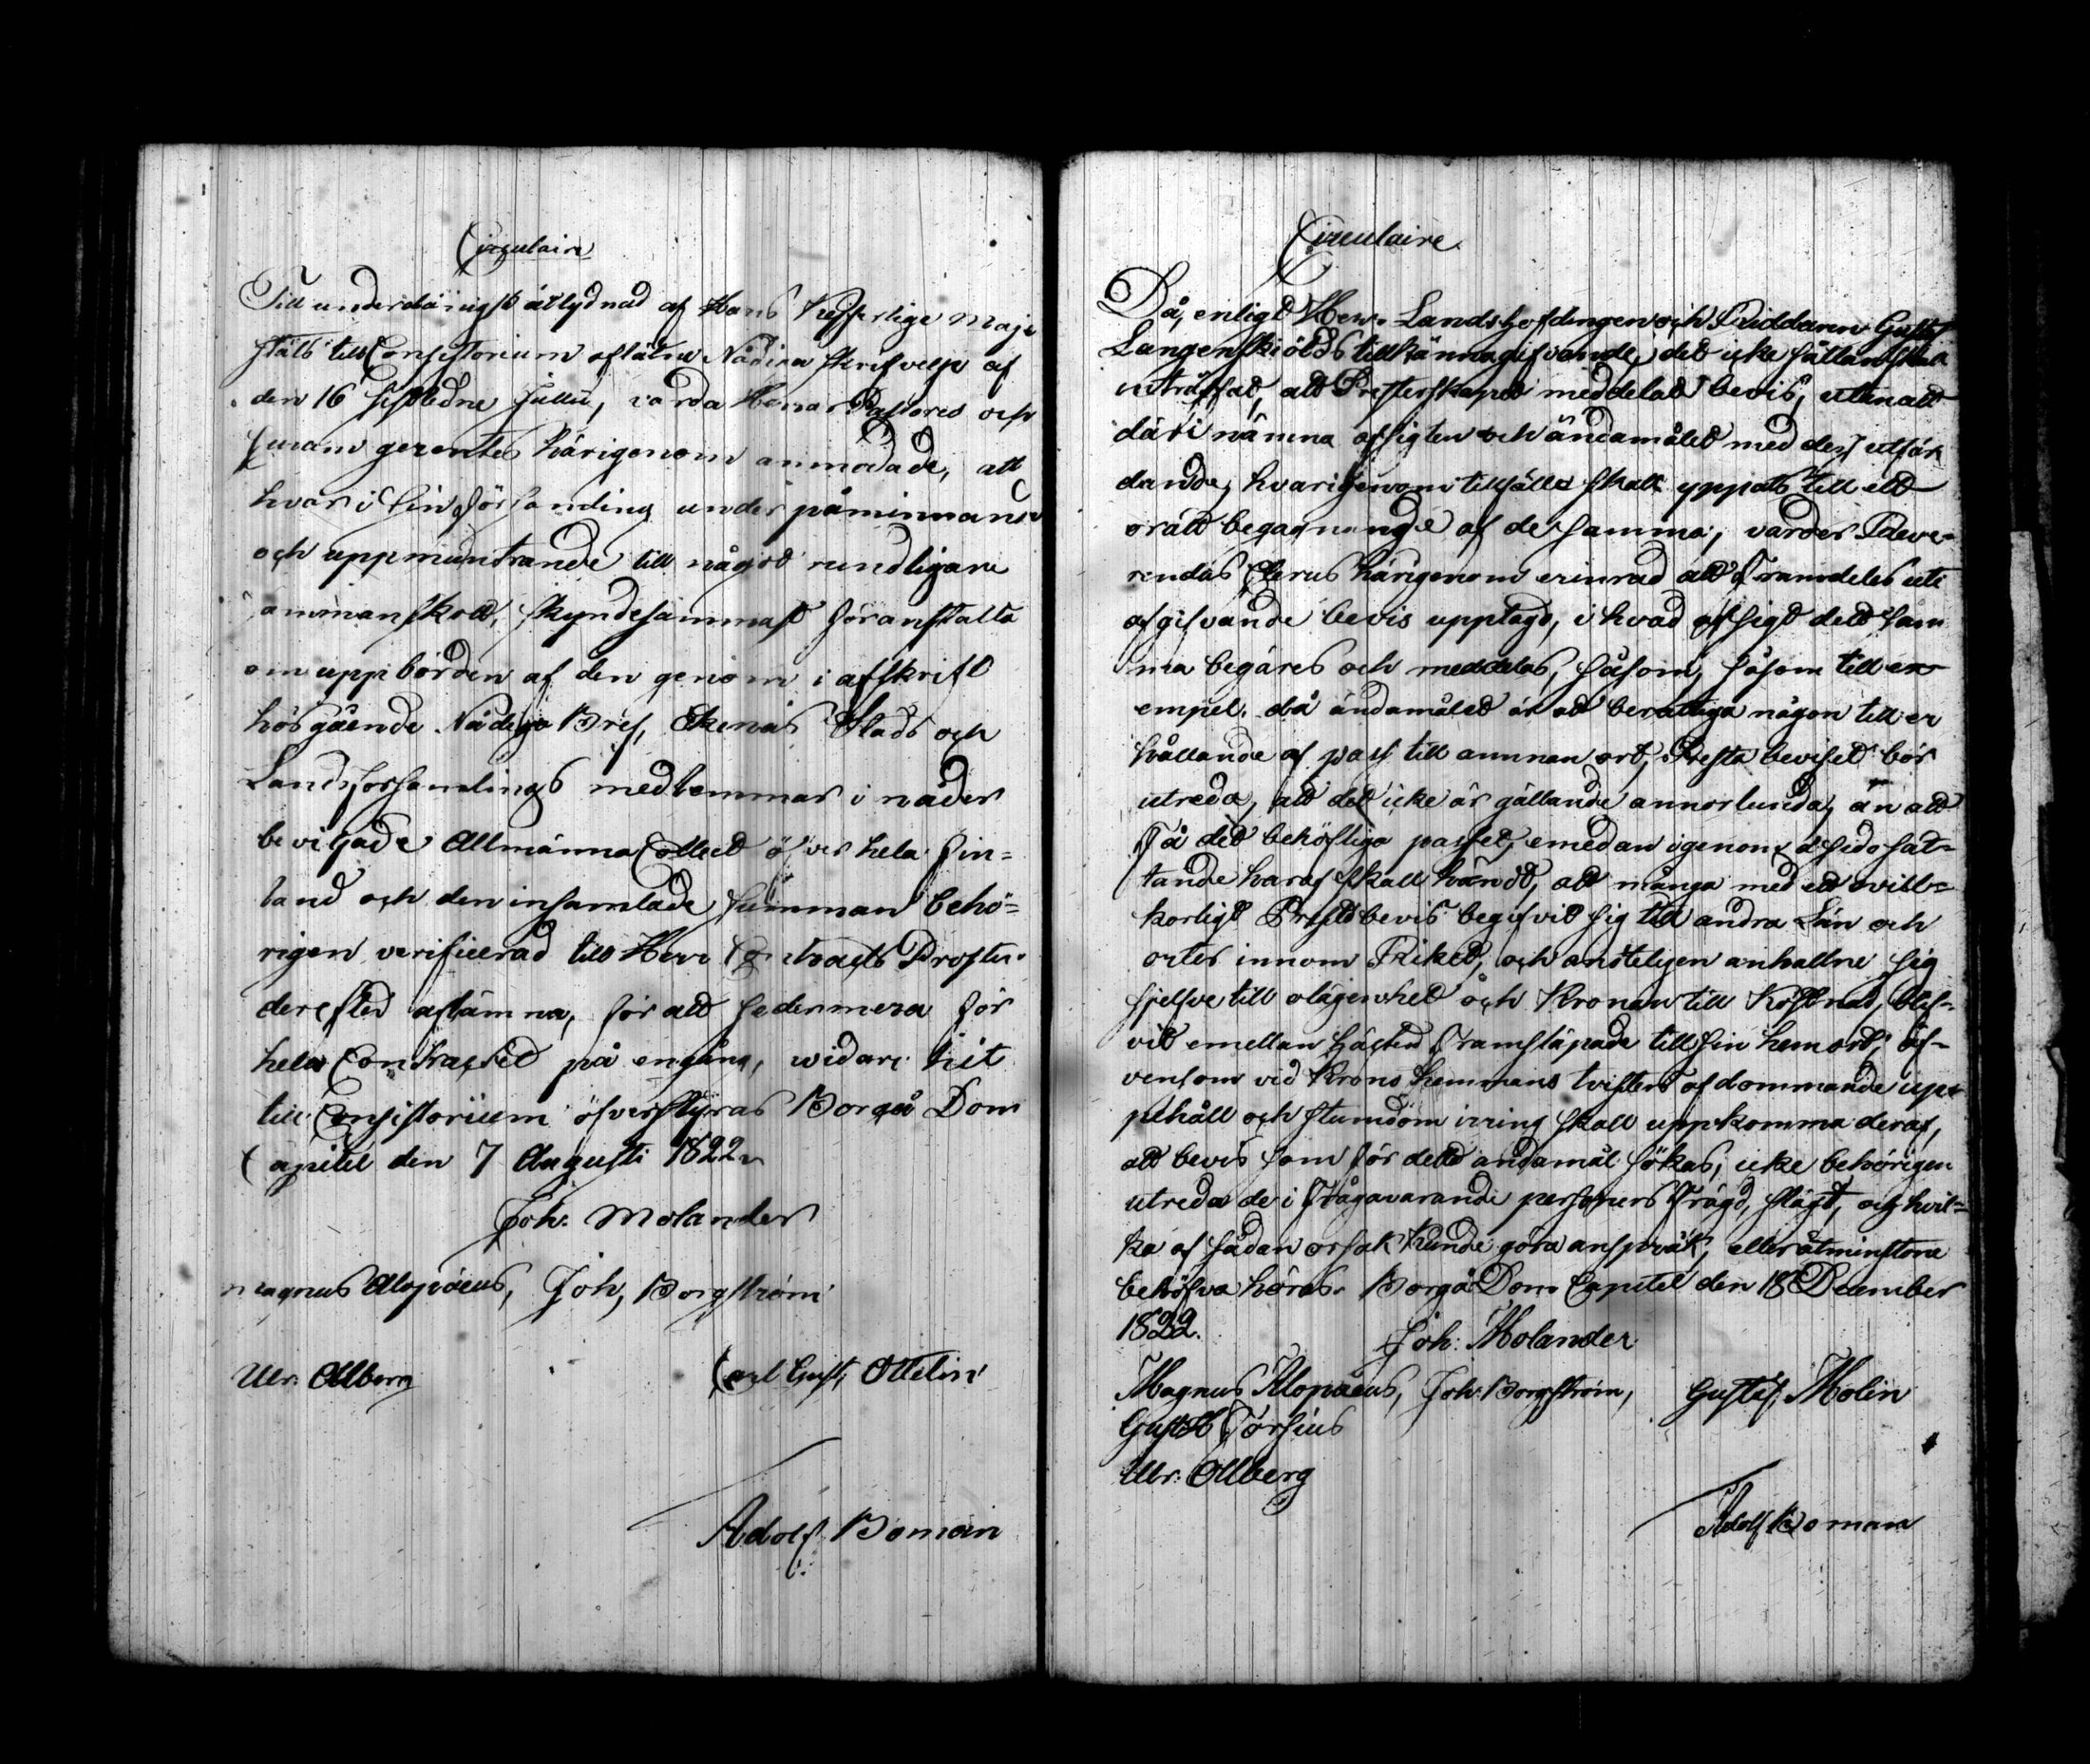 Circulaire
Till underdånigst åtlydnad af Hans Kejserlige Maje
stäts till Consistorium aflåtne Nådiga skrifvelse af
den 16 sistledne Julii, varda Herrar Pastores och
Curam gerentes härigenom anmodade, att
hvar i sin församling under påminnande
och uppmuntrande till något rundligare
ammanskott, skyndesammast föranstalta
om uppbörden af den genom i afskrift
hosgående Nådiga Bref, Ekenäs Stads och
Landsförsamlings medlemmar i nåder
beviljade Allmänna Collect öfver hela Fin=
land och den insamlade summan behö=
rigen verificerad till Herr Contracts Prosten
derefter aflämna, för att sedermera för
hela Contractet på engång, widare hit
till Consistorium öfverstyras Borgå Dom
Capitel den 7 Augusti 1822
Joh. Molander
Magnus Alopaeus, Joh, Borgström
Ulr. Ahlberg Carl Gust. Ottelin
Adolf Boman
Circulaire.
Då, enligt Herr Landshöfdingen och Riddaren Gustaf
Langenskiölds tillkännagifvande, det icke sällan skall
inträffat, att Presterskapet meddelat bevis, utan att
däri nämna afsigten och ändamålet med dess utfär
dande, hvarigenom tillfälle skall yppats till ett
orätt begagnande af desamma; varder Reve=
rendus Clerus härigenom erinrad att framdeles uti
afgifvande bevis upptaga, i hvad afsigt dett sam
ma begäres och meddelas, såsom, såsom till ex
empel. då ändamålet är att berättiga någon till er
hållande af pass till annan ort, Presta beviset bör
utreda, att det icke är gällande annorlunda, än att
få det behöfliga passet, emedan igenom åsidosät=
tande haraf skall händt, att många med ett ovill=
korligt Prestbevis begifvit sig till andra Län och
orter innom Riket, och anteligen anhallne sig
sjelfve till olägenhet och Kronan till Kostnad, blif=
vit emellan häcten framsläpade till sin hemort; äf=
vensom vid Krono hemmans tvisters afdommande up=
pehåll och stundom irring skall uppkomma deraf,
att bevis som för detta ändamål sökas, icke behörigen
utreda de i frågavarande personers frägd, slägt, och hvil=
ka af sådan orsak kunde göra anspråk, eller åtminstone
behöfva höras. Borgå Dom Capitel den 18 December
1822.
Joh. Molander
Magnus Alopaeus, Joh. Borgström, Gustaf Molin
Gustaf Forsius
Ulr. Ahlberg
Adolf Boman